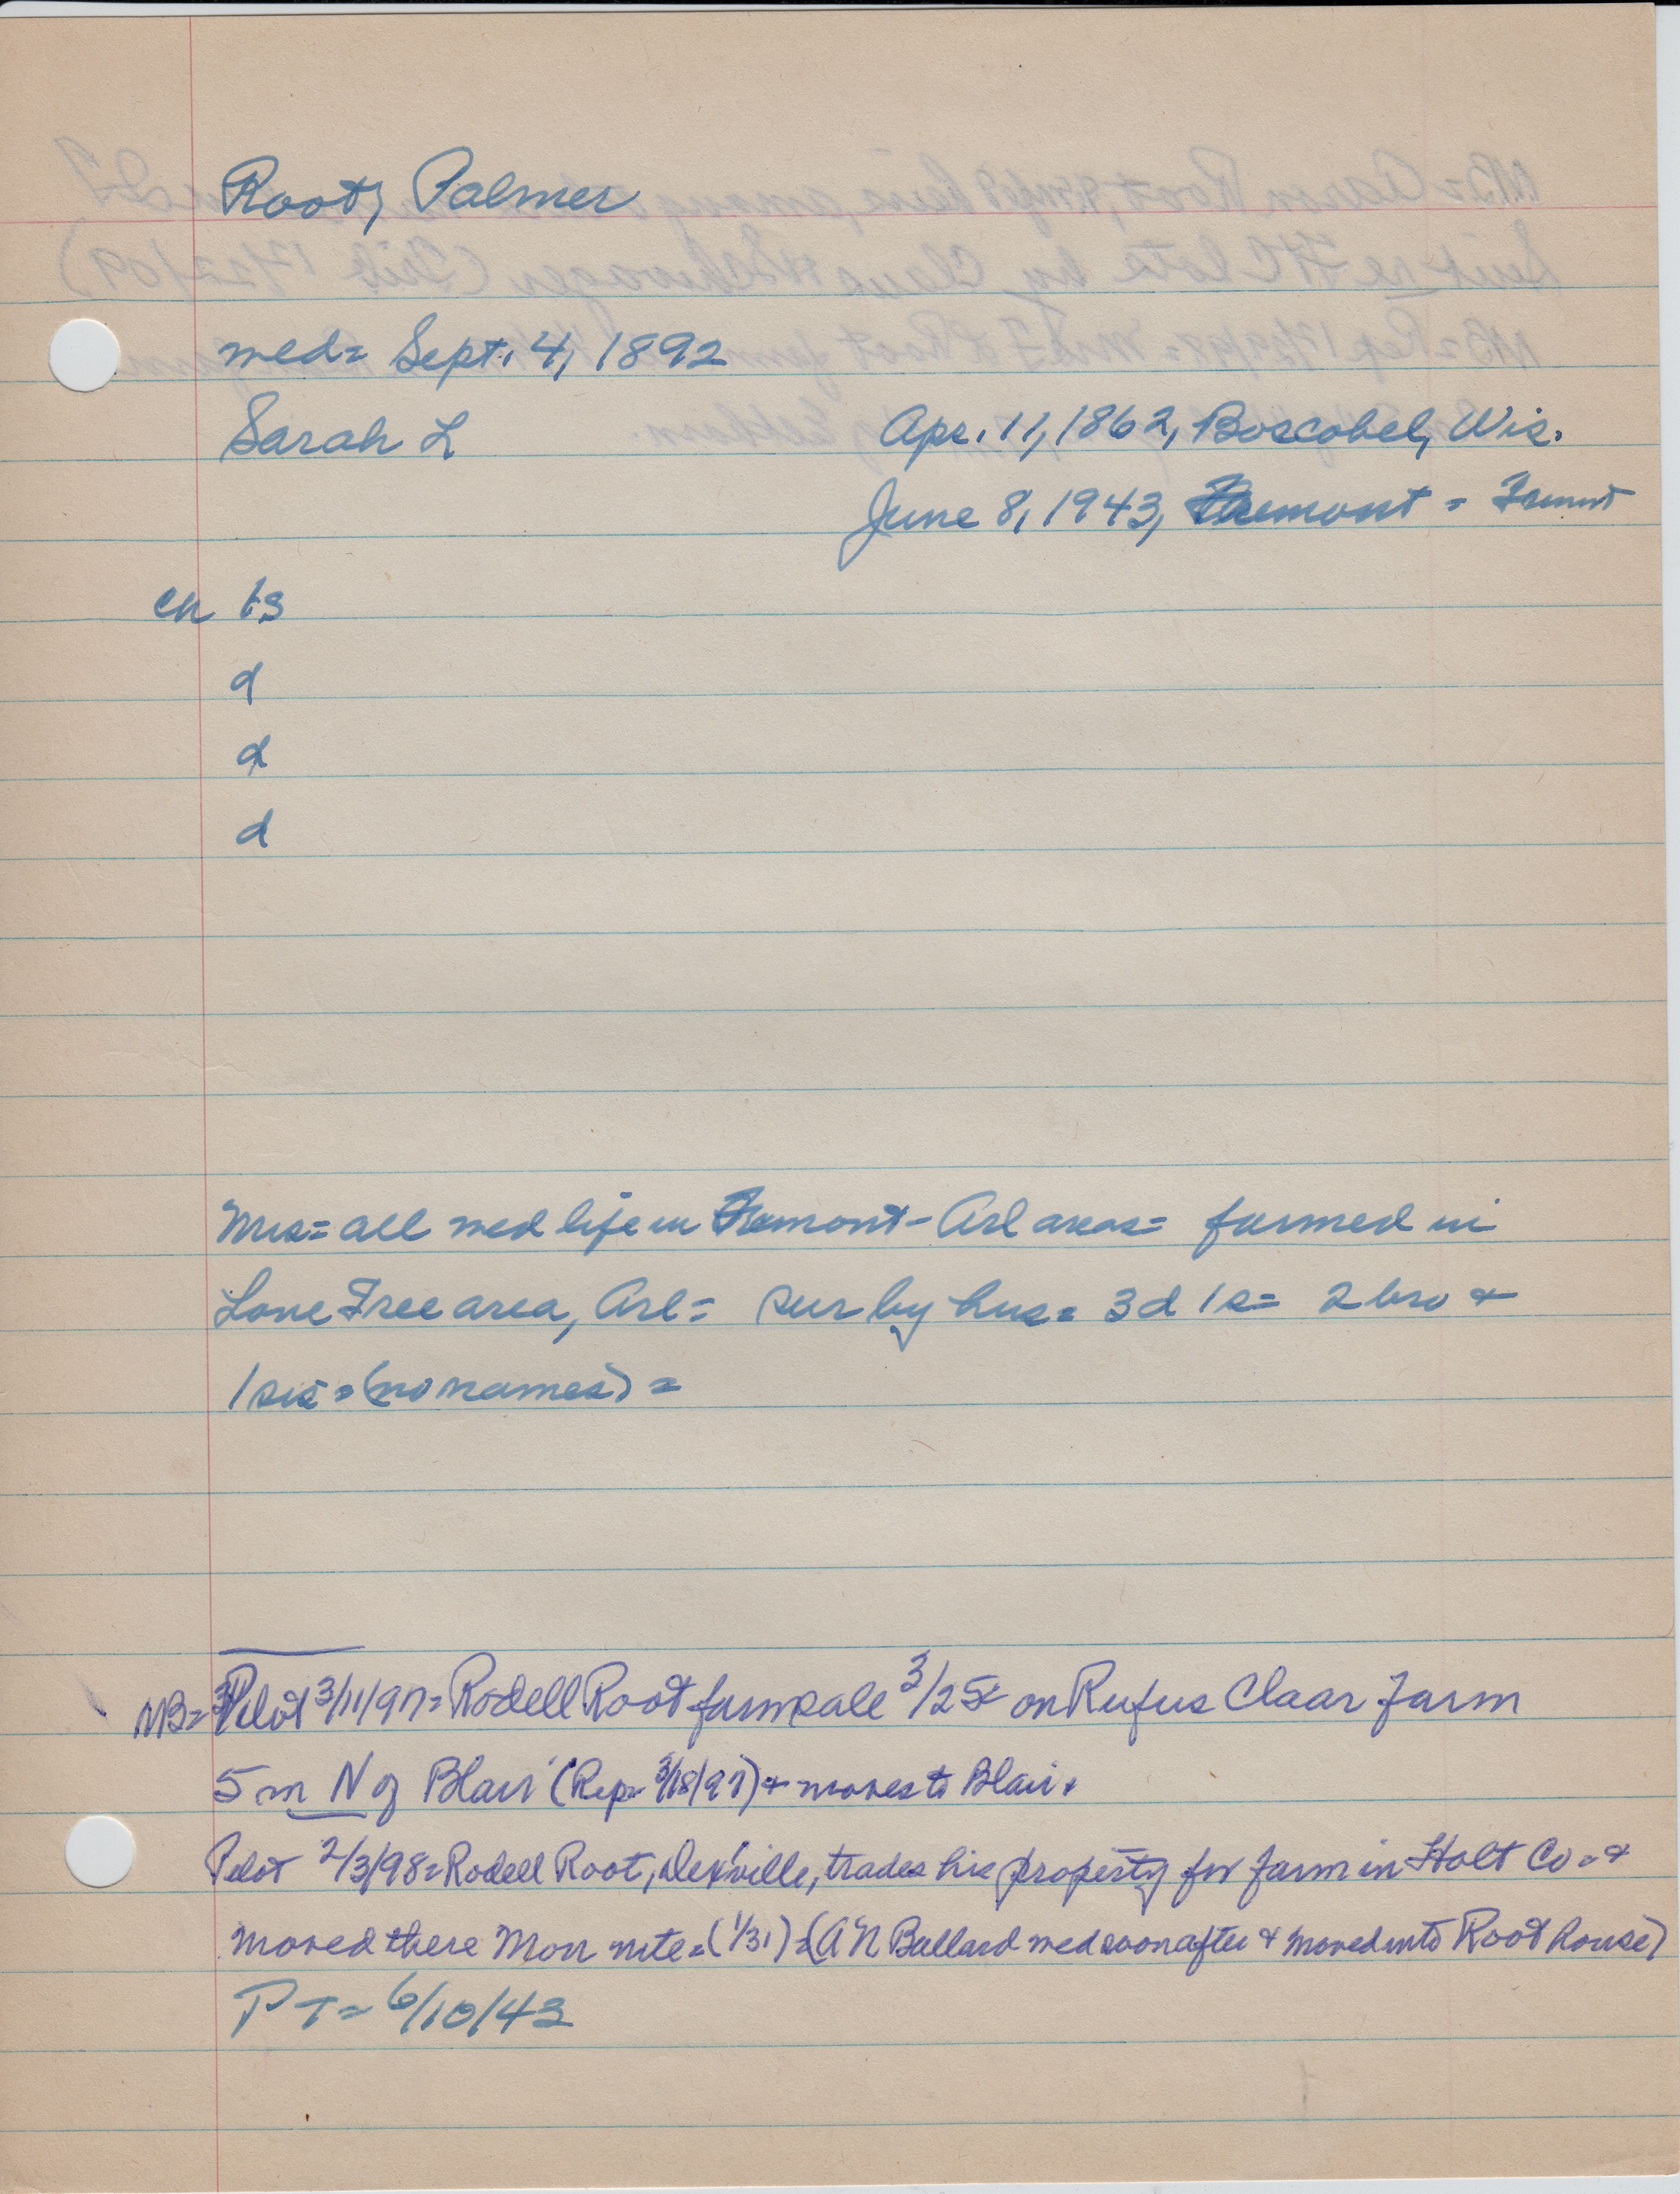 Root, Palmer
wed= Sept. 4, 1892
Sarah L Apr. 11, 1862, Boscobel, Wis.
June 8, 1943, Fremont = Fremont
ch 1s
d
d
d
Mrs= all wed life in Fremont - Arl areas= farmed in
Lone Tree area, Arl= sur by hus= 3d 1s= 2 bro &
1 sis= (no names) =
NB= Pilot 3/11/97= Rodell Root farm sale 3/25 on Rufus Claar farm
5 m N of Blair (Rep= 3/18/97) & moves to Blair.
Pilot 2/3/98= Rodell Root, Dexville, trades his property for farm in Holt Co. &
moved there Mon nite= (1/31) = (A N Ballard wed soon after & moved into Root house)
PT= 6/10/43